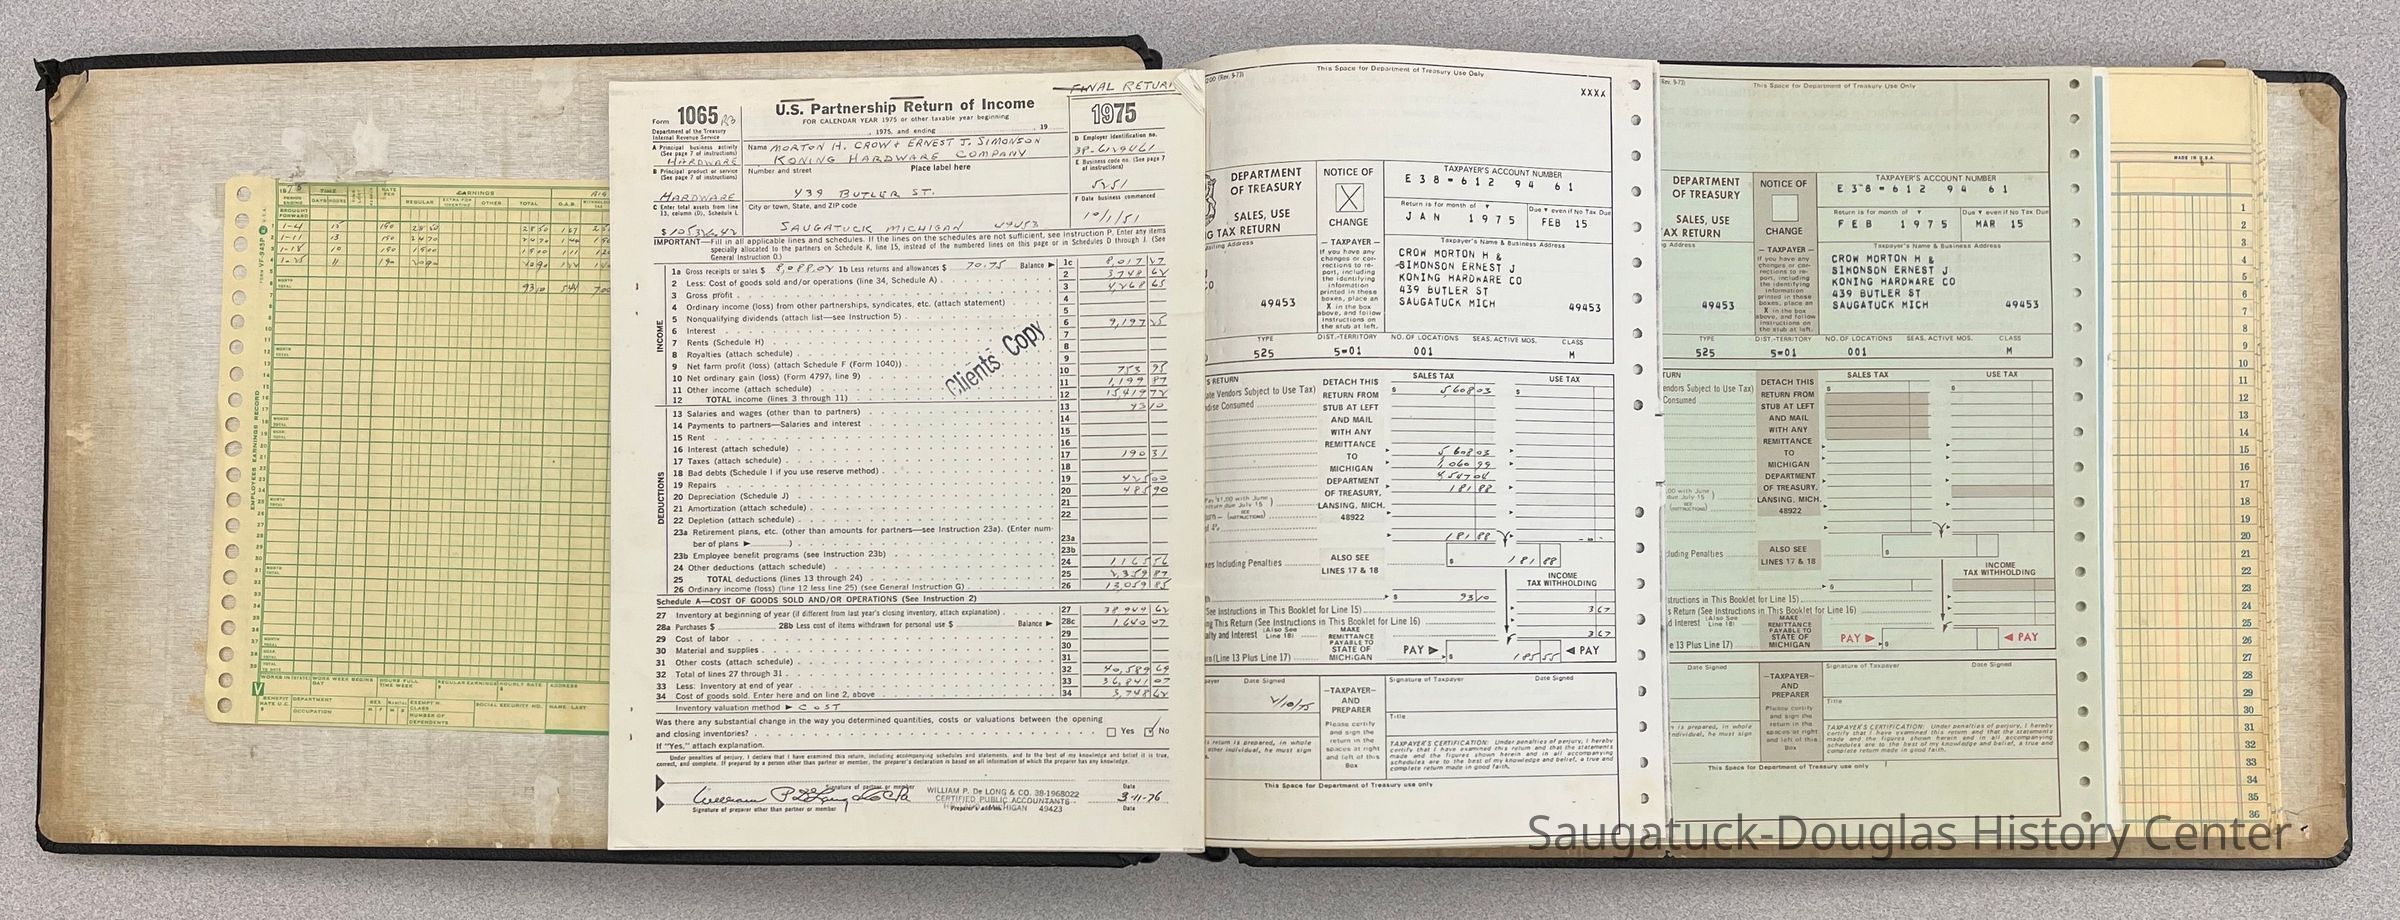 1975
TIME
EARNINGS
DAYS HOURS
REGULAR
OTHER
TOTAL
O.A.B.
BROUGHT FORWARD
1-4 15 190 28 50 28 50 167
1-11 13 190 24 70 24 70 144
1-18 10 190 19 00 19 00 111
1-25 11 190 20 90 20 90 122
93 10 544
EMPLOYEES EARNINGS RECORD
FINAL RETURN
Form 1065
Department of the Treasury
Internal Revenue Service
U.S. Partnership Return of Income
FOR CALENDAR YEAR 1975 or other taxable year beginning
, 1975, and ending , 19
1975
A Principal business activity
(See page 7 of instructions)
HARDWARE
B Principal product or service
(See page 7 of instructions)
HARDWARE
C Enter total assets from line
13, column (D), Schedule L
Name MORTON H. CROW & ERNEST J. SIMONSON
KONING HARDWARE COMPANY
Number and street Place label here
439 BUTLER ST.
City or town, State, and ZIP code
SAUGATUCK MICHIGAN 49453
D Employer identification no.
38-6129461
E Business code no. (See page 7
of instructions)
5251
F Date business commenced
10/1/51
IMPORTANT—Fill in all applicable lines and schedules. If the lines on the schedules are not sufficient, see Instruction P. Enter any items
specially allocated to the partners on Schedule K, line 15, instead of the numbered lines on this page or in Schedules D through J. (See
General Instruction O.)
INCOME
1a Gross receipts or sales $ 8,088.02 1b Less returns and allowances $ 70.75 Balance ▶ 1c 8,017 27
2 Less: Cost of goods sold and/or operations (line 34, Schedule A) 2 3748 62
3 Gross profit 3 4,268 65
4 Ordinary income (loss) from other partnerships, syndicates, etc. (attach statement) 4
5 Nonqualifying dividends (attach list—see Instruction 5) 5
6 Interest 6 9,197 25
7 Rents (Schedule H) 7
8 Royalties (attach schedule) 8
9 Net farm profit (loss) (attach Schedule F (Form 1040)) 9
10 Net ordinary gain (loss) (Form 4797, line 9) 10 753 95
11 Other income (attach schedule) 11 1,199 87
12 TOTAL income (lines 3 through 11) 12 15419 72
Clients Copy
DEDUCTIONS
13 Salaries and wages (other than to partners) 13 93 10
14 Payments to partners—Salaries and interest 14
15 Rent 15
16 Interest (attach schedule) 16
17 Taxes (attach schedule) 17 190 31
18 Bad debts (Schedule I if you use reserve method) 18
19 Repairs 19 425 00
20 Depreciation (Schedule J) 20 485 90
21 Amortization (attach schedule) 21
22 Depletion (attach schedule) 22
23a Retirement plans, etc. (other than amounts for partners—see Instruction 23a). (Enter num-
ber of plans ▶ ) 23a
23b Employee benefit programs (see Instruction 23b) 23b
24 Other deductions (attach schedule) 24 1165 56
25 TOTAL deductions (lines 13 through 24) 25 2,359 87
26 Ordinary income (loss) (line 12 less line 25) (see General Instruction G) 26 13059 85
Schedule A—COST OF GOODS SOLD AND/OR OPERATIONS (See Instruction 2)
27 Inventory at beginning of year (if different from last year's closing inventory, attach explanation) 27 38949 62
28a Purchases $ 28b Less cost of items withdrawn for personal use $ Balance ▶ 28c 1640 07
29 Cost of labor 29
30 Material and supplies 30
31 Other costs (attach schedule) 31
32 Total of lines 27 through 31 32 40,589 69
33 Less: Inventory at end of year 33 36,841 07
34 Cost of goods sold. Enter here and on line 2, above 34 3,748 62
Inventory valuation method ▶ COST
Was there any substantial change in the way you determined quantities, costs or valuations between the opening
and closing inventories? Yes No
If "Yes," attach explanation.
Under penalties of perjury, I declare that I have examined this return, including accompanying schedules and statements, and to the best of my knowledge and belief it is true,
correct, and complete. If prepared by a person other than partner or member, the preparer's declaration is based on all information of which the preparer has any knowledge.
Signature of partner or member Date
WILLIAM P. De LONG & CO. 38-1968022
CERTIFIED PUBLIC ACCOUNTANTS
MICHIGAN 49423
3-11-76
Signature of preparer other than partner or member Preparer's address Date
This Space for Department of Treasury Use Only
XXXX
DEPARTMENT
OF TREASURY
SALES, USE
TAX RETURN
NOTICE OF
X
CHANGE
—TAXPAYER—
If you have any
changes or cor-
rections to re-
port, including
the identifying
information
printed in these
boxes, place an
X in the box
above, and follow
instructions on
the stub at left.
TAXPAYER'S ACCOUNT NUMBER
E 38-612 94 61
Return is for month of
JAN 1975
Due even if No Tax Due
FEB 15
Taxpayer's Name & Business Address
CROW MORTON H &
SIMONSON ERNEST J
KONING HARDWARE CO
439 BUTLER ST
SAUGATUCK MICH 49453
49453
TYPE DIST.-TERRITORY NO. OF LOCATIONS SEAS. ACTIVE MOS. CLASS
525 5-01 001 M
SALES TAX USE TAX
DETACH THIS
RETURN FROM
STUB AT LEFT
AND MAIL
WITH ANY
REMITTANCE
TO
MICHIGAN
DEPARTMENT
OF TREASURY,
LANSING, MICH.
48922
5,608 03
5,608 03
1,060 99
4,547 04
181 88
181 88
ALSO SEE
LINES 17 & 18
181 88
INCOME
TAX WITHHOLDING
93 10
3 67
3 67
(See Instructions in This Booklet for Line 15)
This Return (See Instructions in This Booklet for Line 16)
MAKE
REMITTANCE
PAYABLE TO
STATE OF
MICHIGAN
(Line 13 Plus Line 17)
PAY ▶ $ 185 55 ◀ PAY
Date Signed
2/10/75
—TAXPAYER—
AND
PREPARER
Please certify
and sign the
return in the
spaces at right
and left of this
Box
Signature of Taxpayer Date Signed
Title
TAXPAYER'S CERTIFICATION: Under penalties of perjury, I hereby
certify that I have examined this return and that the statements
made and the figures shown herein and in all accompanying
schedules are to the best of my knowledge and belief, a true and
complete return made in good faith.
This Space for Department of Treasury use only
This Space for Department of Treasury Use Only
DEPARTMENT
OF TREASURY
SALES, USE
TAX RETURN
NOTICE OF
CHANGE
—TAXPAYER—
If you have any
changes or cor-
rections to re-
port, including
the identifying
information
printed in these
boxes, place an
X in the box
above, and follow
instructions on
the stub at left.
TAXPAYER'S ACCOUNT NUMBER
E 38-612 94 61
Return is for month of
FEB 1975
Due even if No Tax Due
MAR 15
Taxpayer's Name & Business Address
CROW MORTON H &
SIMONSON ERNEST J
KONING HARDWARE CO
439 BUTLER ST
SAUGATUCK MICH 49453
49453
TYPE DIST.-TERRITORY NO. OF LOCATIONS SEAS. ACTIVE MOS. CLASS
525 5-01 001 M
SALES TAX USE TAX
DETACH THIS
RETURN FROM
STUB AT LEFT
AND MAIL
WITH ANY
REMITTANCE
TO
MICHIGAN
DEPARTMENT
OF TREASURY,
LANSING, MICH.
48922
ALSO SEE
LINES 17 & 18
INCOME
TAX WITHHOLDING
MAKE
REMITTANCE
PAYABLE TO
STATE OF
MICHIGAN
PAY ▶ $ ◀ PAY
Date Signed
—TAXPAYER—
AND
PREPARER
Please certify
and sign the
return in the
spaces at right
and left of this
Box
Signature of Taxpayer Date Signed
Title
TAXPAYER'S CERTIFICATION: Under penalties of perjury, I hereby
certify that I have examined this return and that the statements
made and the figures shown herein and in all accompanying
schedules are to the best of my knowledge and belief, a true and
complete return made in good faith.
This Space for Department of Treasury use only
MADE IN U.S.A.
1
2
3
4
5
6
7
8
9
10
11
12
13
14
15
16
17
18
19
20
21
22
23
24
25
26
27
28
29
30
31
32
33
34
35
36
Saugatuck-Douglas History Center